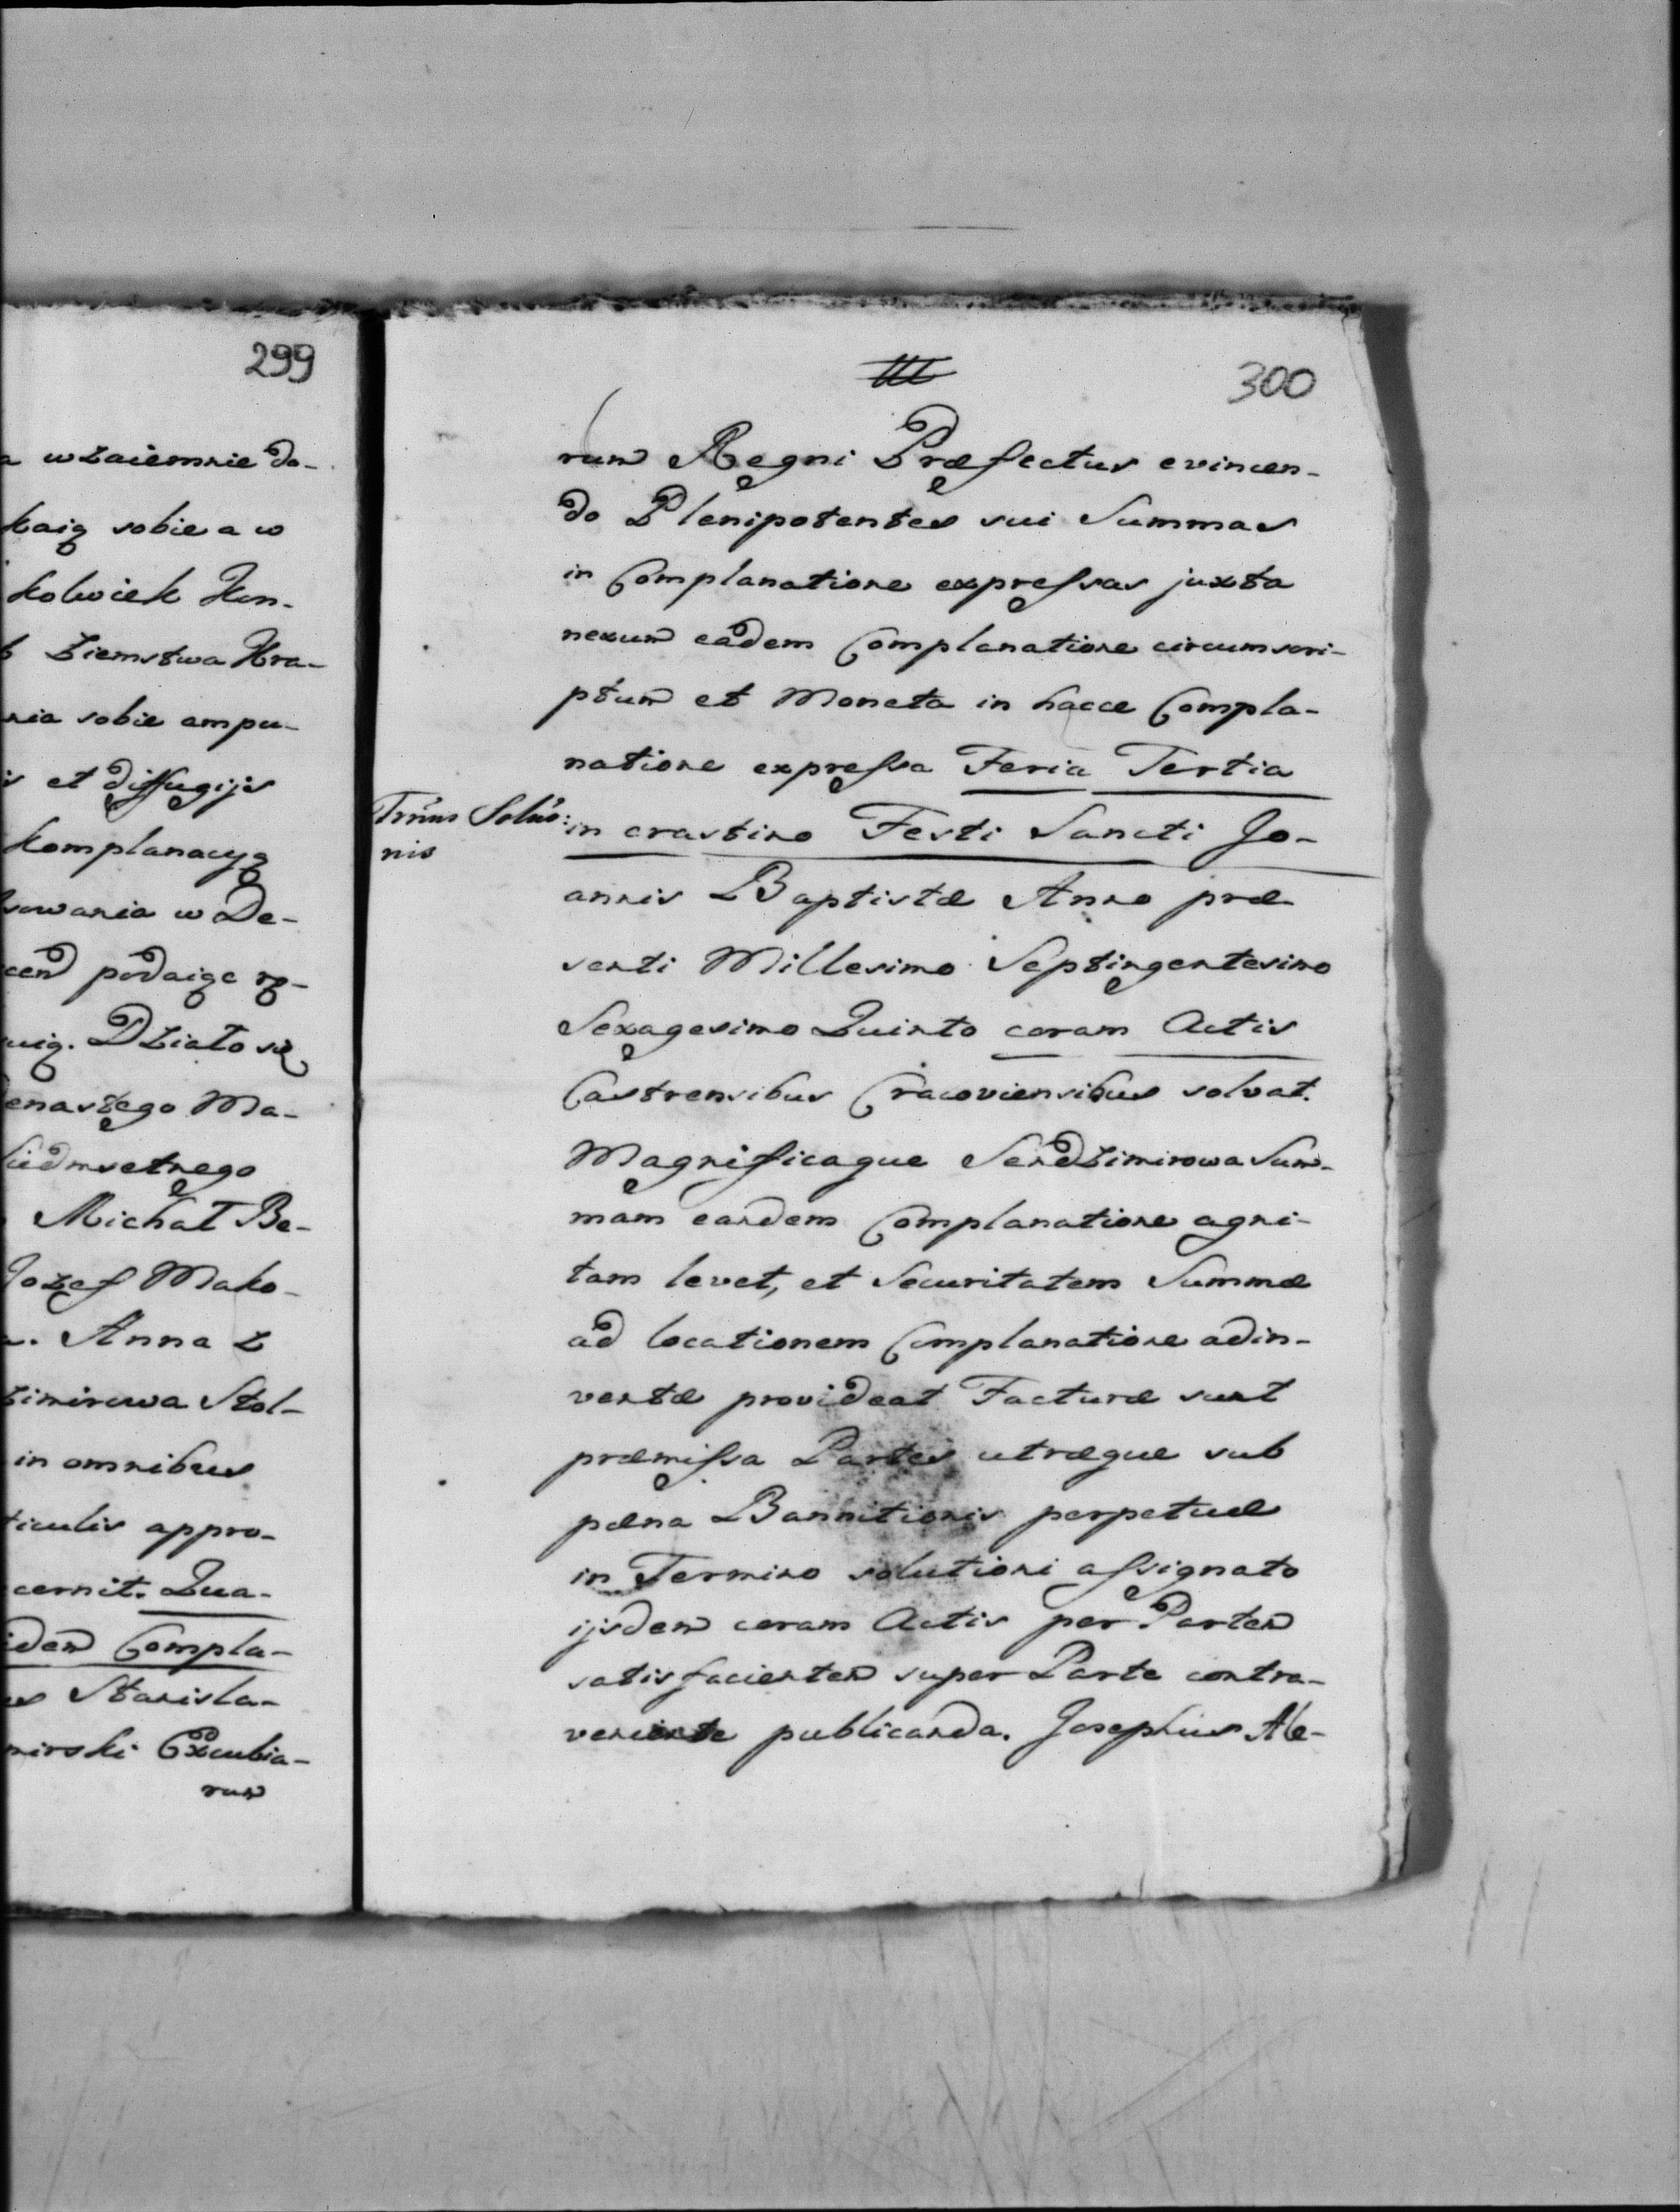 299
a wzaiemnie do-
kaią sobie a w
kolwiek Kon-
b Ziemstwa Kra-
nia sobie ampu-
is et diffugijs
komplanacyą
sowania w De-
cend podaiąc rę-
uią. Działo się
enastego Ma-
Siedmsetnego
Michał Be-
Jozef Mako-
a. Anna z
zimirowa Stol-
in omnibus
ticulis appro-
cernit. Qua-
idem Compla-
us Stanisla-
mirski Excubia-
rum
300
rum Regni Præfectus evincen-
do Plenipotentes sui Summas
in Complanatione expressas juxta
nexum eadem Complanatione circumscri-
ptum et Moneta in hacce Compla-
natione expressa Feria Tertia
Trnus Solũo:
nis
in crastino Festi Sancti Jo-
annis Baptistæ Anno præ-
senti Millesimo Septingentesimo
Sexagesimo Quinto coram Actis
Castrensibus Cracoviensibus solvat.
Magnificaque Sendzimirowa Sum-
mam eandem Complanatione agni-
tam levet, et Securitatem Summæ
ad locationem Complanatione adin-
ventæ provideat Facturæ sunt
præmissa Partes utræque sub
pæna Bannitionis perpetuæ
in Termino solutioni assignato
ijsdem coram Actis per Partem
satisfacientem super Parte contra-
veniente publicanda. Josephus Ale-